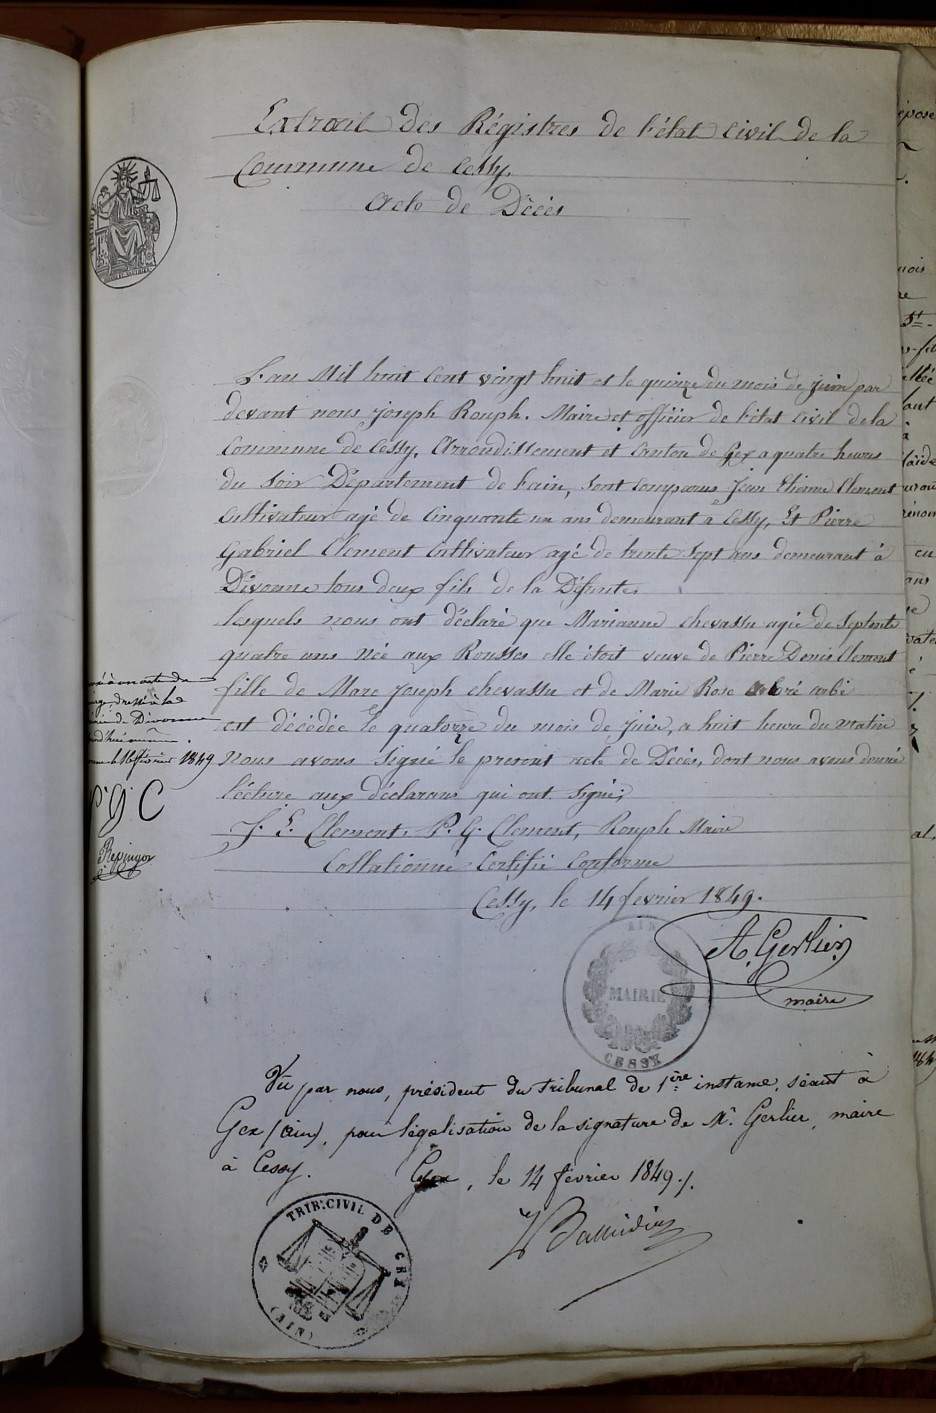 Extrait des Régistres de l'état civil de la
Commune de Cessy.
Acte de Décès
L'an Mil huit Cent vingt huit et le quinze du mois de juin par
devant nous joseph Rouph. Maire et officier de l'état civil de la
Commune de Cessy, Arrondissement et Canton de Gex a quatre heures
du soir Département de l'ain, sont comparus Jean Etienne Clement
Cultivateur agé de Cinquante un ans demeurant a Cessy, Et Pierre
Gabriel Clement Cultivateur agé de trente sept ans demeurant à
Divonne tous deux fils de la Défunte.
lesquels nous ont déclaré que Marianne chevassu agée de septente
quatre ans née aux Rousses elle étoit veuve de Pierre Denis Clement
fille de Marc Joseph chevassu et de Marie Rose
est décédée le quatorze du mois de juin, a huit heure du matin
Nous avons signé le présent acte de Décès, dont nous avons donné
lécture aux déclarans qui ont signé,
J. E. Clement, P. G. Clement, Rouph Maire
Collationné Certifié Conforme
Cessy, le 14 fevrier 1849.
A. Gerlier
maire
AIN
MAIRIE
CESSY
à la
de Divonne
février 1849
P. G. C
Vu par nous, président du tribunal de 1ère instance, séant à
Gex (ain), pour légalisation de la signature de Mr. Gerlier, maire
à Cessy.
Gex, le 14 février 1849.
TRIB. CIVIL DE GEX
(AIN)